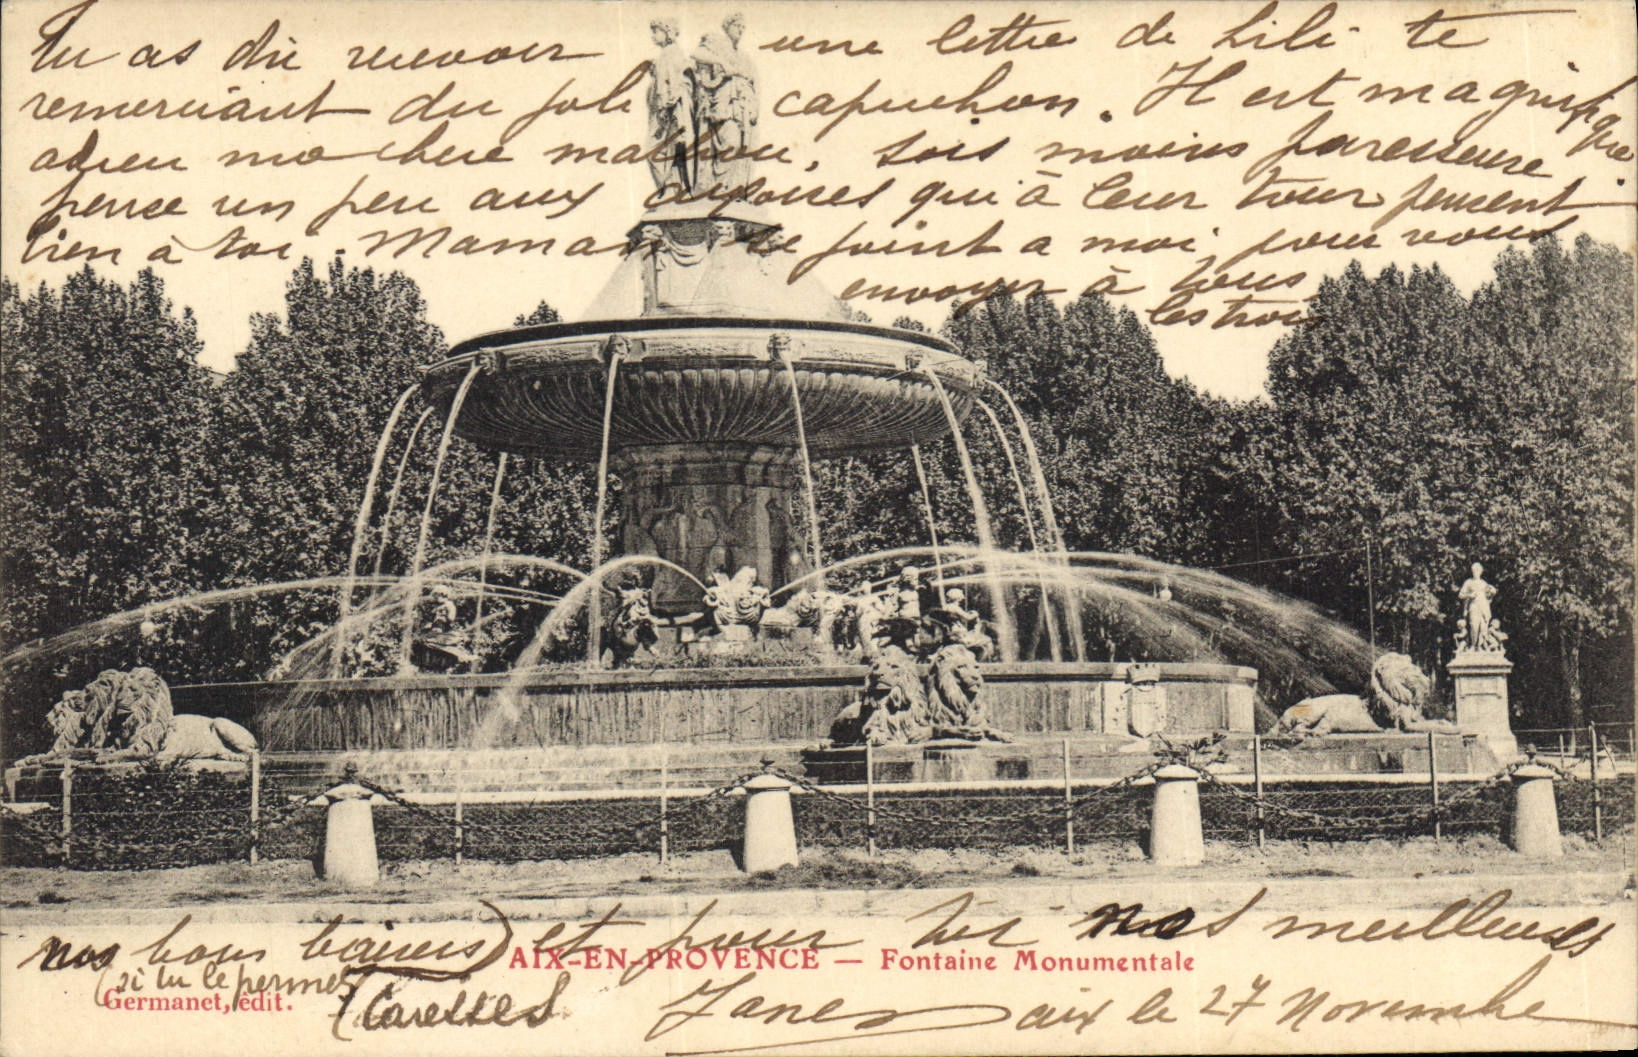 Tu as dû recevoir une lettre de Lili te
remerciant du joli capuchon. Il est magnifique
adieu ma chère mathou, sois moins paresseuse
pense un peu aux aixoises qui à leur tour pensent
bien à toi. Maman se joint a moi pour vous
envoyer à tous
les trois
nos bons baisers) et pour toi nos meilleures
AIX-EN-PROVENCE — Fontaine Monumentale
(si tu le permets
Germanet, édit.
(Caresses Jane aix le 27 Novembre